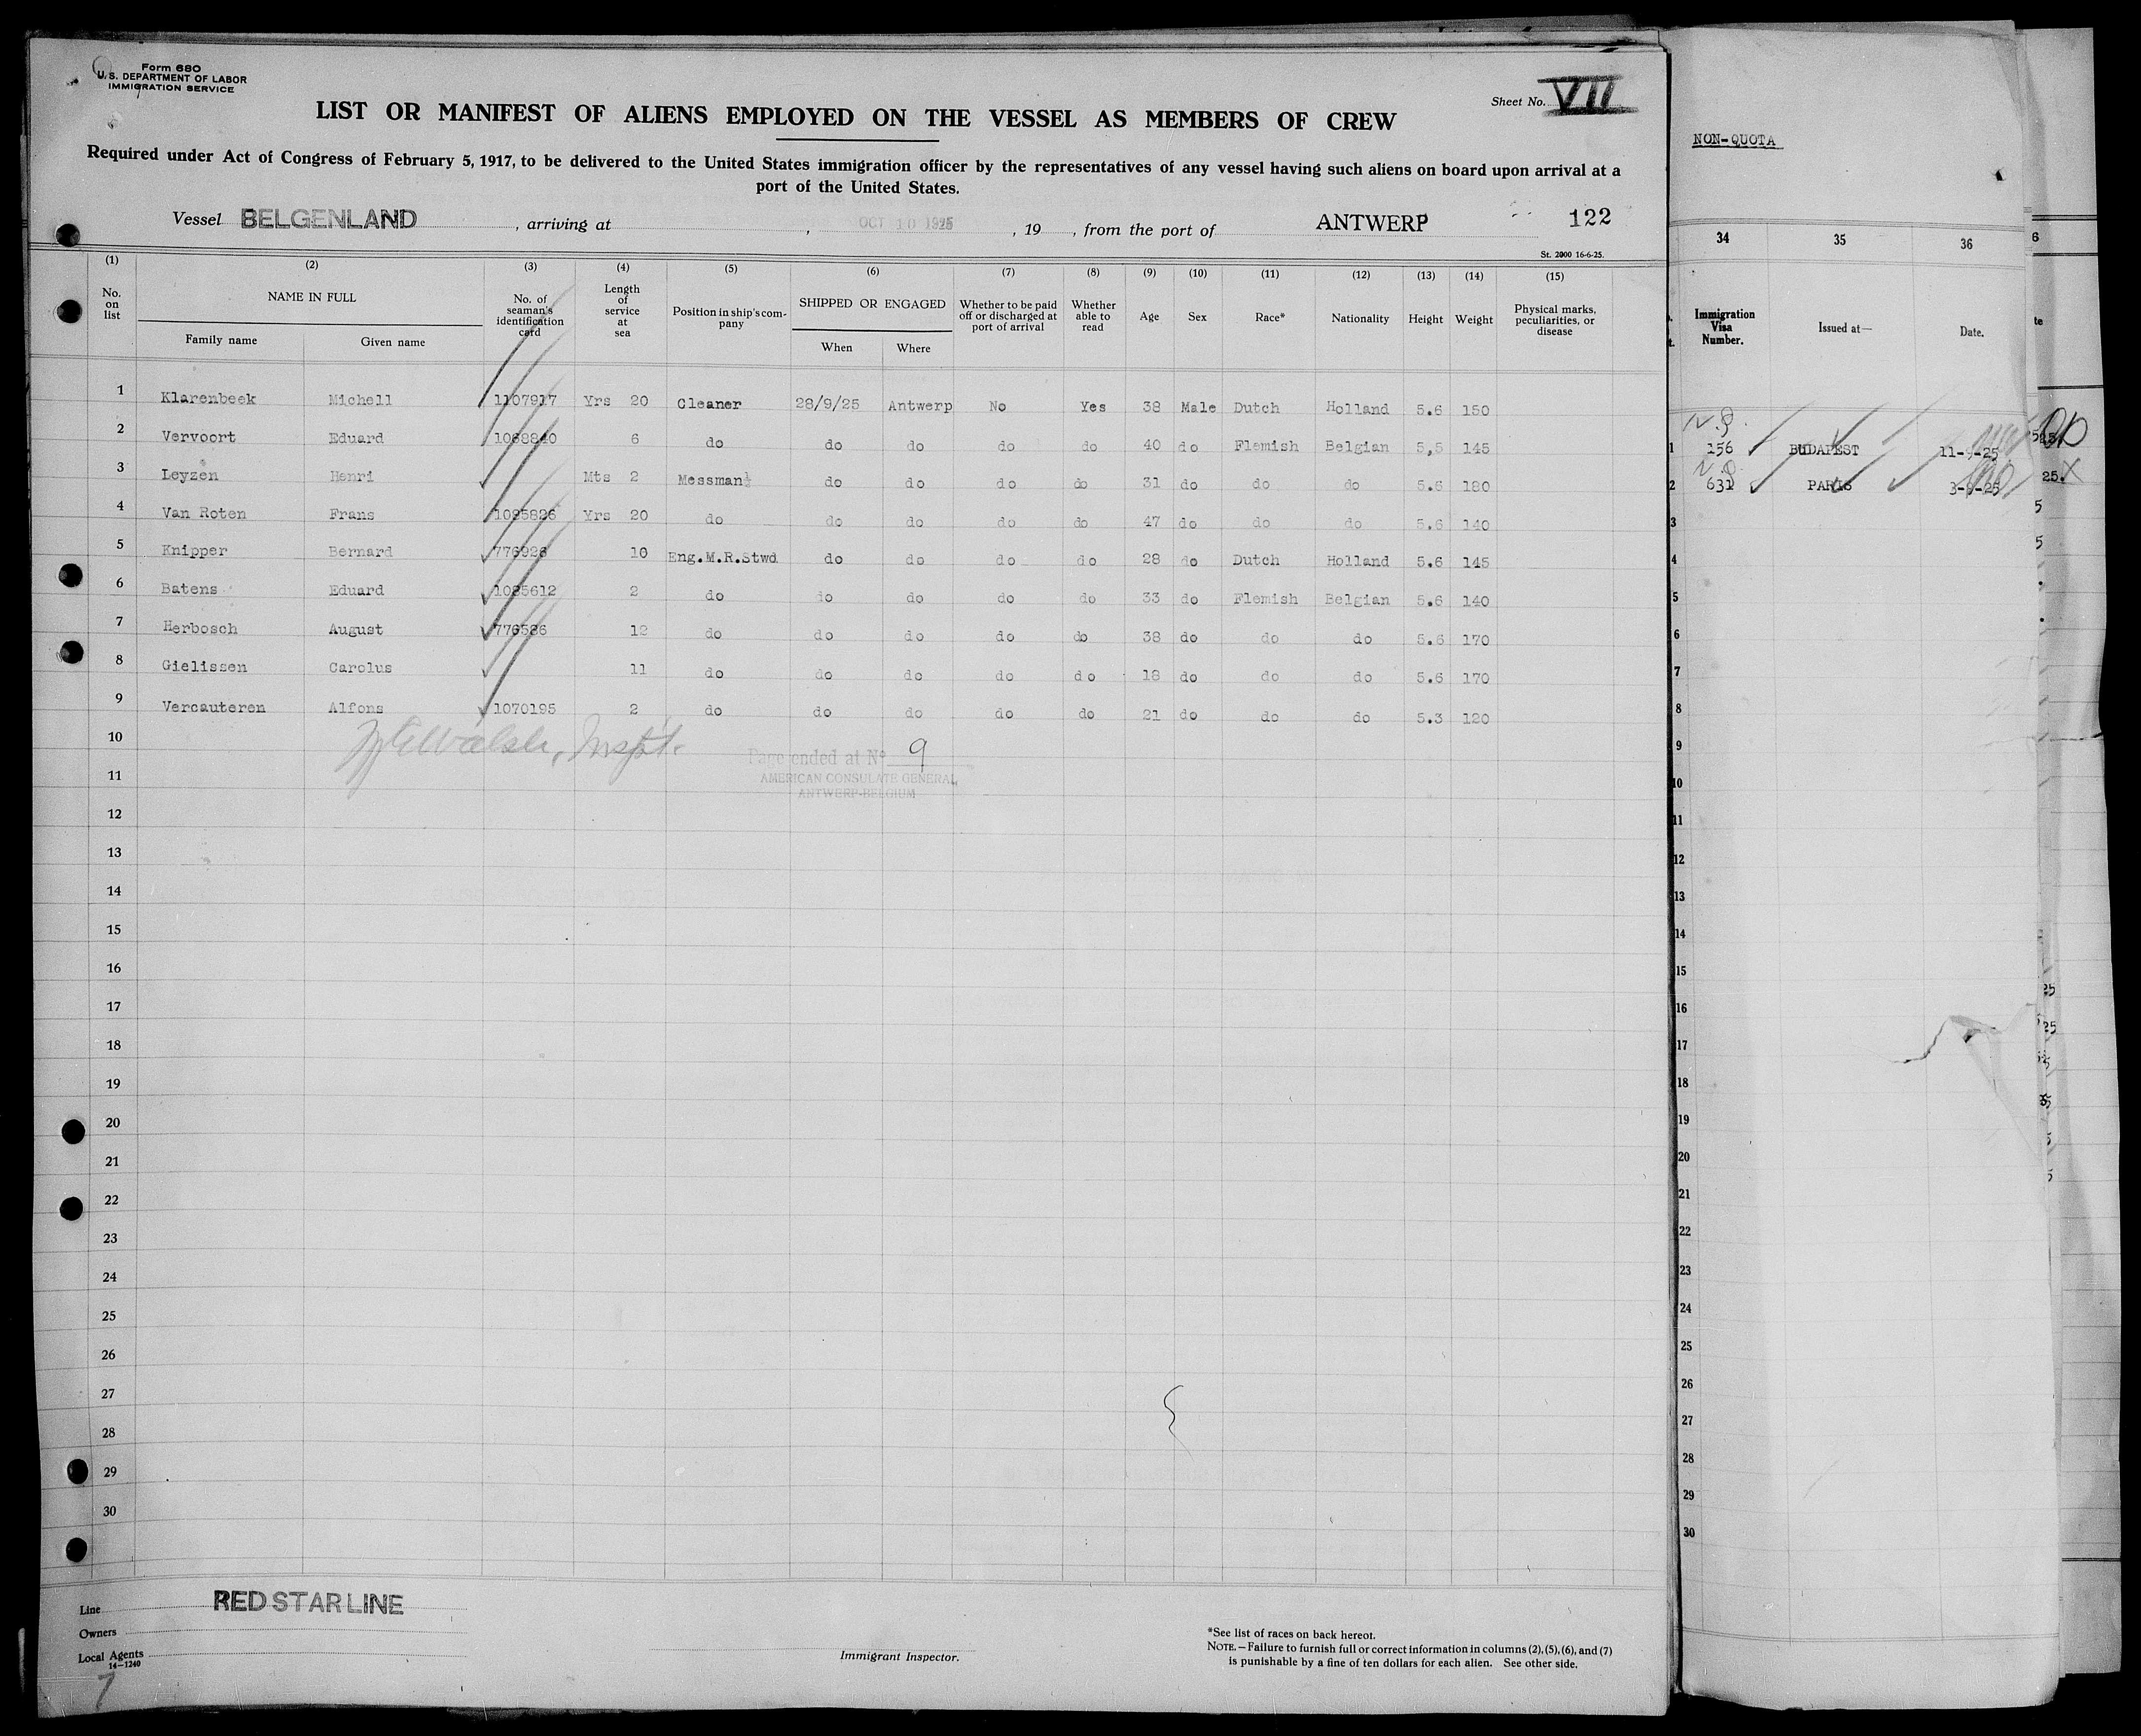 Form 680
U.S. DEPARTMENT OF LABOR
IMMIGRATION SERVICE
Sheet No. VII
LIST OR MANIFEST OF ALIENS EMPLOYED ON THE VESSEL AS MEMBERS OF CREW
Required under Act of Congress of February 5, 1917, to be delivered to the United States immigration officer by the representatives of any vessel having such aliens on board upon arrival at a
port of the United States.
Vessel BELGENLAND, arriving at , OCT 10 1925, 19 , from the port of ANTWERP 122
St. 2000 16-6-25.
(1) (2) (3) (4) (5) (6) (7) (8) (9) (10) (11) (12) (13) (14) (15)
No. on list NAME IN FULL Family name Given name No. of seaman's identification card Length of service at sea Position in ship's company SHIPPED OR ENGAGED When Where Whether to be paid off or discharged at port of arrival Whether able to read Age Sex Race* Nationality Height Weight Physical marks, peculiarities, or disease
1 Klarenbeek Michell 1107917 Yrs 20 Cleaner 28/9/25 Antwerp No Yes 38 Male Dutch Holland 5.6 150
2 Vervoort Eduard 1068840 6 do do do do do 40 do Flemish Belgian 5,5 145
3 Leyzen Henri Mts 2 Messman do do do do 31 do do do 5.6 180
4 Van Roten Frans 1025826 Yrs 20 do do do do do 47 do do do 5.6 140
5 Knipper Bernard 776926 10 Eng.M.R.Stwd do do do do 28 do Dutch Holland 5.6 145
6 Batens Eduard 1025612 2 do do do do do 33 do Flemish Belgian 5.6 140
7 Herbosch August 776586 12 do do do do do 38 do do do 5.6 170
8 Gielissen Carolus 11 do do do do do 18 do do do 5.6 170
9 Vercauteren Alfons 1070195 2 do do do do do 21 do do do 5.3 120
10 Walsh, Inspt.
Page ended at No 9
AMERICAN CONSULATE GENERAL
ANTWERP-BELGIUM
11
12
13
14
15
16
17
18
19
20
21
22
23
24
25
26
27
28
29
30
Line RED STAR LINE
Owners
Local Agents
14-1240
7
Immigrant Inspector.
*See list of races on back hereof.
NOTE.—Failure to furnish full or correct information in columns (2), (5), (6), and (7)
is punishable by a fine of ten dollars for each alien. See other side.
NON-QUOTA
34 35 36
Immigration Visa Number. Issued at— Date.
1 156 BUDAPEST 11-9-25
2 631 PARIS 3-9-25
3
4
5
6
7
8
9
10
11
12
13
14
15
16
17
18
19
20
21
22
23
24
25
26
27
28
29
30